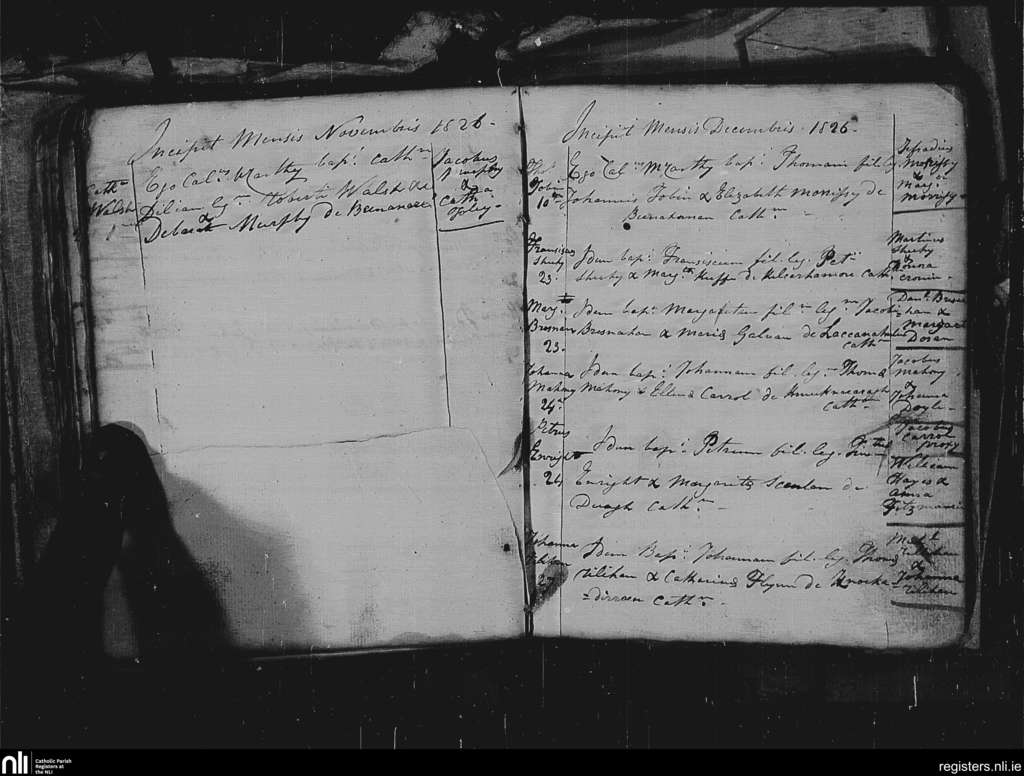 Incipit Mensis Novembris 1826 -
Cath.
Walsh
1
Ego Cal.s McCarthy bap.i Cath.m
filiam leg.m Roberti Walsh &
Deborah Murphy de
Jacobus
Murphy
&
Cath
Foley -
Incipit Mensis Decembris 1826 -
Tobin
10
Ego Cal.s McCarthy bap.i Thomam fil. leg.
Johannis Tobin & Elizabeth Morrissy de
Cath.m
Morrissy
&
Mary
Morrissy
Franciscus
Sheehy
23
Idem bap.i Franciscum fil. leg. Pet.
Sheehy & Mary Keeffe de Cath.
Martinus
Sheehy
&
Honna
Cronin
Marg.
Bresnan
23.
Idem bap.i Margaritam fil.m leg.m Jacobi
Bresnahan & Maria Galvan de
Cath.m
Dan.l Bresna
han &
Margaret
Doran
Johanna
Mahony
24.
Idem bap.i Johannam fil. leg.m Thoma
Mahony & Ellena Carrol de
Cath.m
Jacobus
Mahony
&
Johanna
Doyle -
Jacobus
Carrol
proxy
Petrus
Enright
24
Idem bap.i Petrum fil. leg.
Enright & Margarita Scanlan de
Duagh Cath.m -
William
Hayes &
Anna
Fitzmaurice
Johanna
27
Idem Bap.i Johannam fil. leg. Thoma
Relihan & Catharina Flynn de Knocka
=dirreen Cath.m -
Relihan
&
Johanna
Relihan
nli
Catholic Parish
Registers at
the NLI
registers.nli.ie